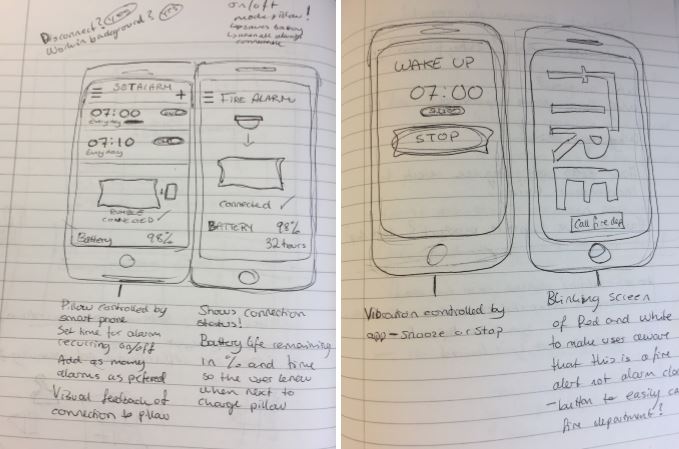 Disconnect? Yes
Work in background? Yes
on/off
mode pillow!
SET ALARM +
07:00
Everyday
07:10
Everyday
CONNECTED ✓
Battery 98%
FIRE ALARM
connected ✓
BATTERY 98%
32 hours
Pillow controlled by
smart phone
Set time for alarm
recurring on/off
Add as many
alarms as
Visual feedback of
connection to pillow
Shows connection
status!
Battery life remaining
in % and time
so the user knew
when next to
charge pillow
WAKE UP
07:00
STOP
Vibration controlled by
app - Snooze or Stop
FIRE
Call fire dep
Blinking screen
of Red and white
to make users aware
that this is a fire
alert not alarm cloc
- button to easily ca
fire department!